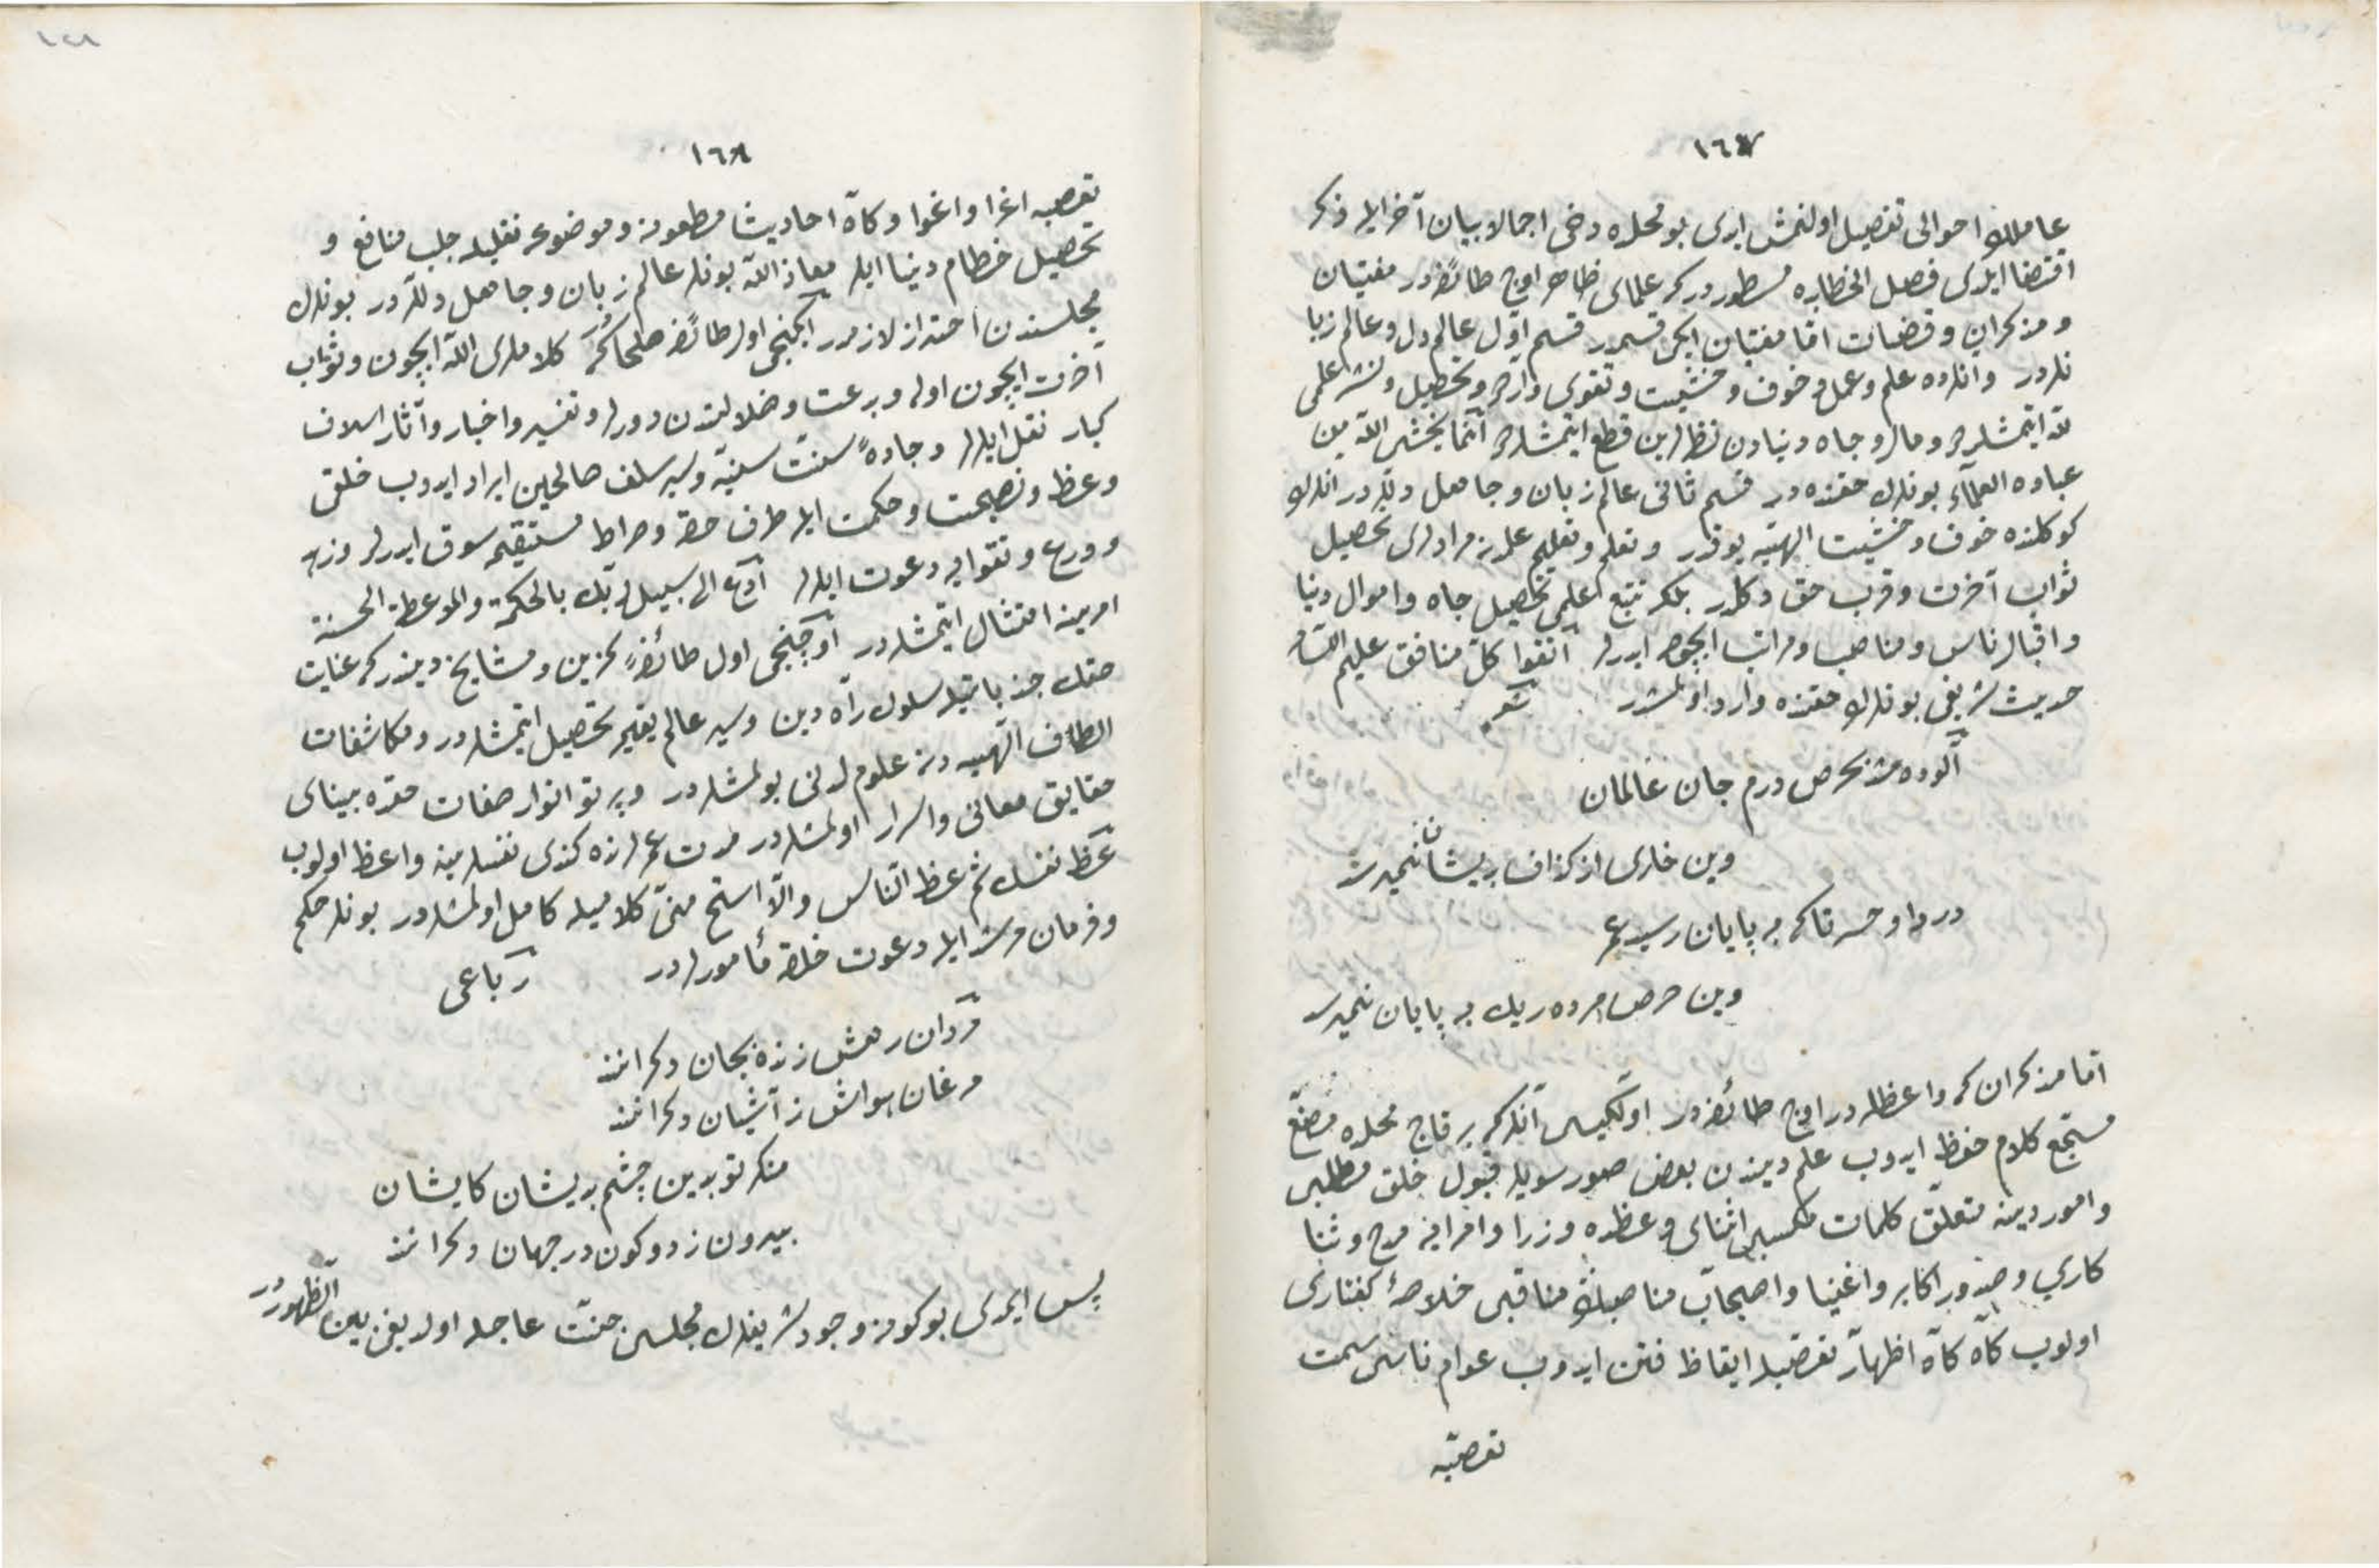 ١٦٧
عاملرك احوالى تفصيل اولنمش ايدى بو محلده دخى اجمالا بيان آخر ايله ذكر
اقتضا ايلدى فصل الخطابده مسطوردركه علماى ظاهر اوچ طائفه در مفتيان
و مذكران و قضات اما مفتيان ايكى قسمدر قسم اول عالم دل و عالم زبا
نلردر و انلرده علم و عمل و خوف و خشيت و تقوى واردر و تحصيل و نشر علمى
لله ايتمشلردر و مال و جاه دنيادن نظرلرين قطع ايتمشلردر انما يخشى الله من
عباده العلمآء بونلرك حقنده در قسم ثانى عالم زبان و جاهل دللردر انلرك
كوكلنده خوف و خشيت الهيه يوقدر و تعلم و تعليم علمدن مرادلرى تحصيل
ثواب آخرت و قرب حق دكلدر بلكه تتبع علمى تحصيل جاه و اموال دنيا
و اقبال ناس و مناصب و مراتب ايچون ايدرلر اتقوا كل منافق عليم اللسان
حديث شريفى بونلرك حقنده وارد اولمشدر شعر
آلوده شد بحرص درم جان عالمان
وين خارى از كزاف بريشان نميرسد
دردا و حسرتا كه به پايان رسيد عمر
وين حرص مرده ريك به پايان نميرسد
اما مذكران كه واعظلردر اوچ طائفه در اولكيسى آنلركه بر قاچ محلده مصنع
مسجع كلام حفظ ايدوب علم ديندن بعض صور سويلر قبول خلق مطلبى
و امور دينه متعلق كلمات مكسبى اثناى وعظده وزرا و امرايه مدح و ثنا
كارى و صدور اكابر و اغنيا و اصحاب مناصبك مناقبى خلاصهٔ كفتارى
اولوب كاه كاه اظهار تعصبله ايقاظ فتن ايدوب عوام ناسى سمت
تعصبه
١٦٨
تعصبه اغرا و اغوا و كاه احاديث مطعونه و موضوعه نقليله جلب منافع و
تحصيل حطام دنيا ايلر معاذ الله بونلر عالم زبان و جاهل دللردر بونلرك
مجلسندن احتراز لازمدر ايكنجى اول طائفهٔ صلحادركه كلاملرى الله ايچون و ثواب
آخرت ايچون اوله و بدعت و ضلالتدن دورلر و تفسير و اخبار و آثار اسلاف
كبار نقل ايلرلر و جادهٔ سنت سنيه و سير سلف صالحين ايراد ايدوب خلق
وعظ و نصيحت و حكمت ايله طرف حقه و صراط مستقيمه سوق ايدرلر و زهد
و ورع و تقوايه دعوت ايلرلر ادع الى سبيل ربك بالحكمة والموعظة الحسنة
امرينه امتثال ايتمشلردر اوچنجى اول طائفهٔ كزين و مشايخ ديندركه عنايت
حقك جذباتيله سلوك راه دين و سير عالم يقين تحصيل ايتمشلردر و مكاشفات
الطاف الهيه دن علوم لدنى بولمشلردر و پرتو انوار صفات حقده بيناى
حقايق معانى و اسرار اولمشلردر مدت عمرلرنده كندى نفسلرينه واعظ اولوب
عظ نفسك ثم عظ الناس والا استح منى كلاميله كامل اولمشلردر بونلر حكم
و فرمان مرشد ايله دعوت خلقه مأمورلردر رباعى
مردان رهش زنده بجان دكرانند
مرغان هواش ز آشيان دكرانند
منكر تو بدين چشم بريشان كايشان
بيرون ز دو كون در جهان دكرانند
پس ايمدى بو كونه وجود شريفلرك مجلسى جنت عاجله اولديغى بين الظهوردر